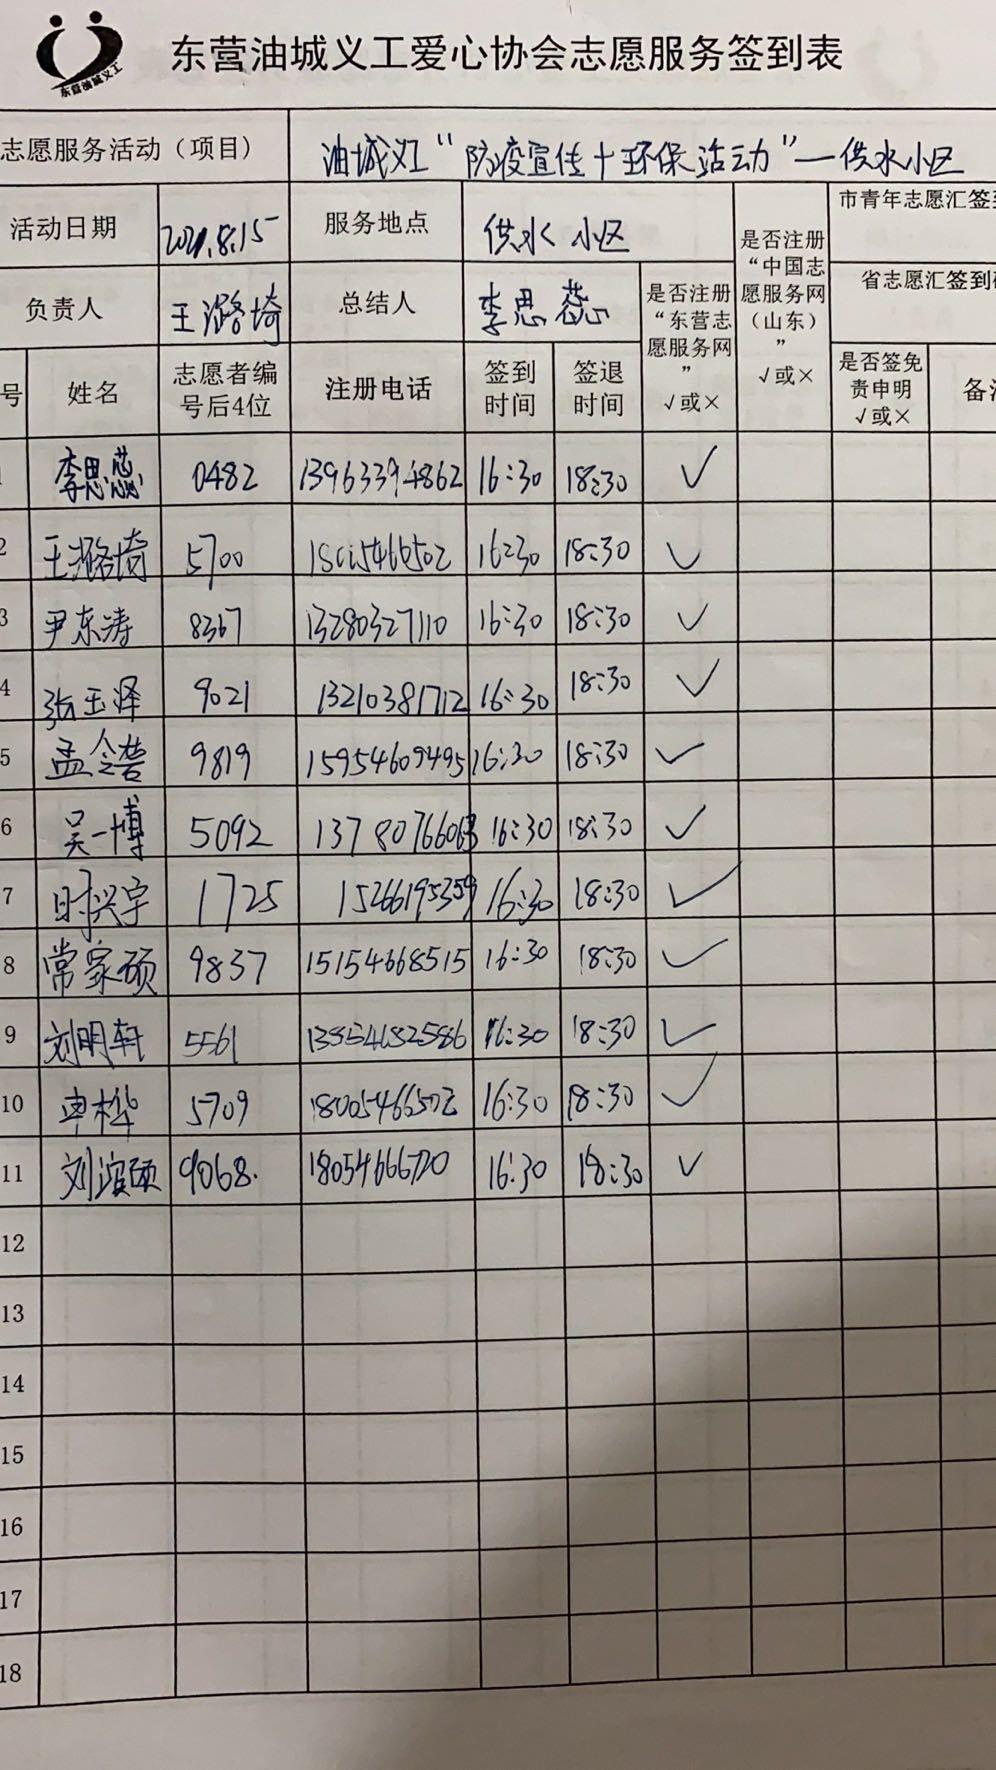 东营油城义工
东营油城义工爱心协会志愿服务签到表
志愿服务活动（项目） 油城义工“防疫宣传+环保活动”—供水小区
活动日期 2021.8.15 服务地点 供水小区 是否注册“中国志愿服务网（山东）” √或× 市青年志愿汇签到
负责人 王潞埼 总结人 李思蕊 是否注册“东营志愿服务网” √或× 省志愿汇签到
号 姓名 志愿者编号后4位 注册电话 签到时间 签退时间 是否签免责申明 √或× 备
李思蕊 0482 13963394862 16:30 18:30 ✓
2 王潞埼 5700 16:30 18:30 ✓
3 尹东涛 8367 13280327110 16:30 18:30 ✓
4 张玉泽 9021 13210381712 16:30 18:30 ✓
5 孟令 9819 15954609495 16:30 18:30 ✓
6 吴一博 5092 16:30 18:30 ✓
7 时兴宇 1725 15266195359 16:30 18:30 ✓
8 常家硕 9837 15154668515 16:30 18:30 ✓
9 刘明轩 5561 13854682586 16:30 18:30 ✓
10 5709 18005466502 16:30 18:30 ✓
11 刘滨硕 9068. 18054666720 16:30 18:30 ✓
12
13
14
15
16
17
18